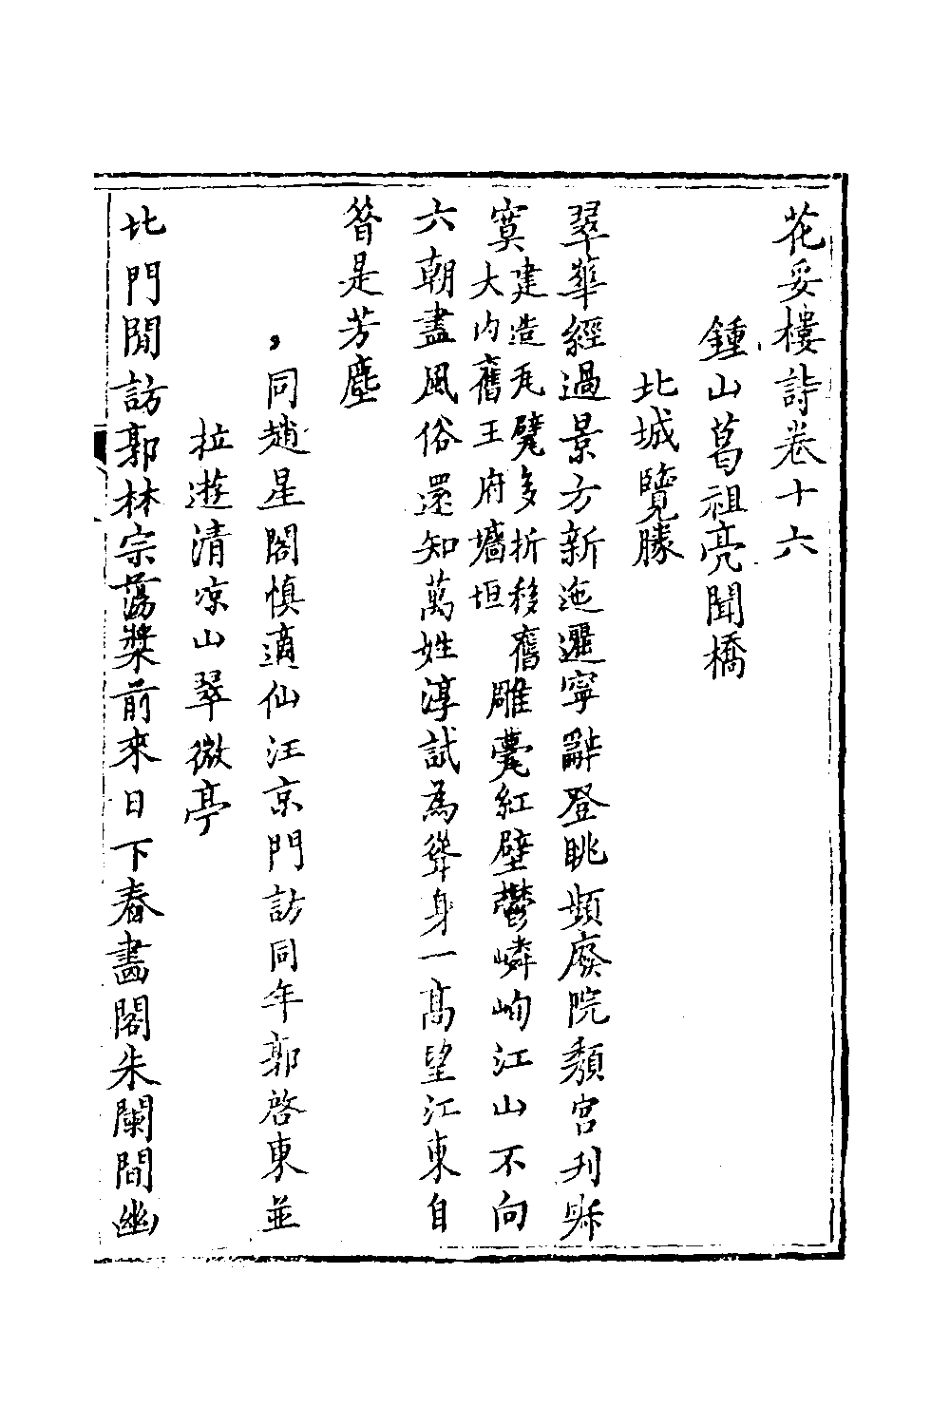 花妥樓詩卷十六
鍾山葛祖亮聞橋
北城覽勝
翠華經過景方新迤邐寧辭登眺頻廢院頹宮列
寞建造瓦甓多折移舊
大内舊王府牆垣
雕甍紅壁鬱嶙峋江山不向
六朝盡風俗還知萬姓淳試為聳身一高望江東自
昔是芳塵
同趙星閣慎適仙汪京門訪同年郭啓東並
拉遊清凉山翠微亭
北門閒訪郭林宗蕩槳前來日下舂畵閣朱闌間幽